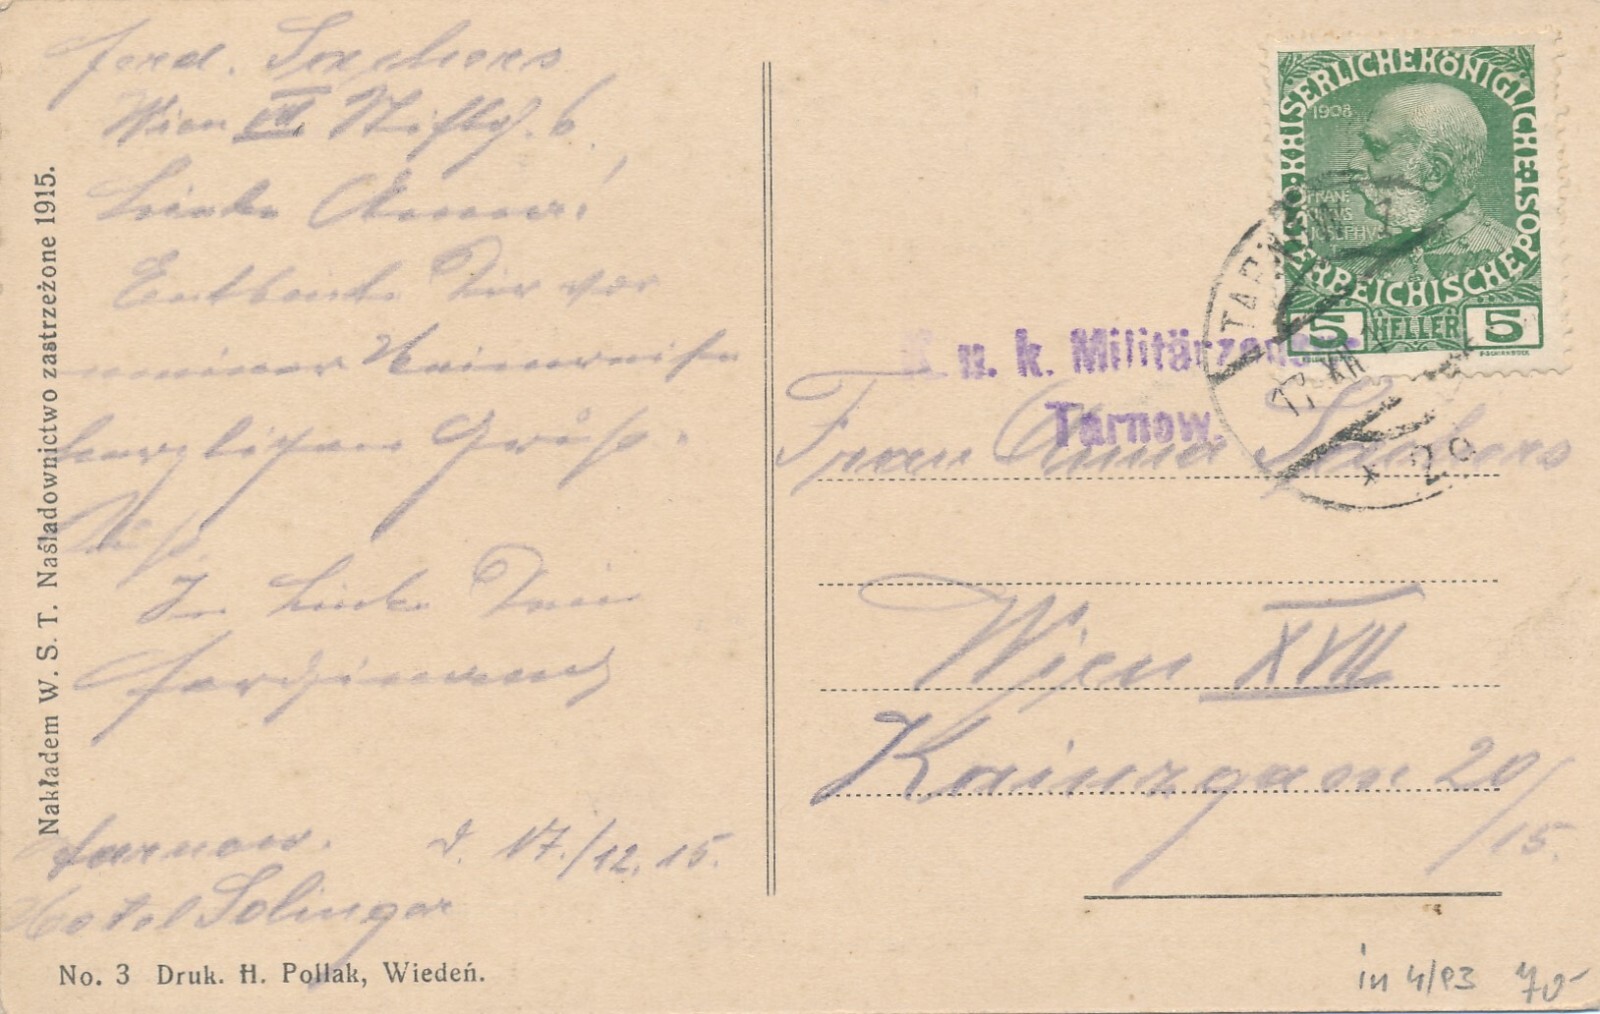 Ferd. Sachers
Wien VII. Stiftg. 6
Liebe Anna!
Entbiete Dir vor
meiner Heimreise
herzlichen Gruß.
Kuß
In Liebe Dein
Ferdinand
Tarnow. d. 17./12. 15.
Hotel Solinger
Nakładem W. S. T. Naśladownictwo zastrzeżone 1915.
No. 3 Druk. H. Pollak, Wiedeń.
KAISERLICHE KÖNIGLICHE ÖSTERREICHISCHE POST
1908
FRANC
JOSEPHVS
I
5 HELLER 5
TARNÓW
17 XII
* 2c
K. u. k. Militärzensur
Tarnow.
Frau Anna Sachers
Wien XVII
Kainzgasse 20/
/15.
in 4/93 70-